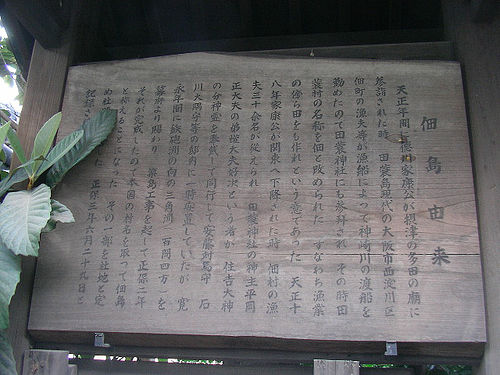 佃島由来
天正年間 徳川家康公が摂津の多田の廟に
参詣された時 田蓑島現代の大阪市西淀川区
佃町の漁夫等が漁船によって神崎川の渡船を
勤めたので田蓑神社にも参拝され その時田
蓑村の名称を佃と改められた すなわち漁業
の傍ら田をも作れという意であった 天正十
八年家康公が関東へ下降された時 佃村の漁
夫三十余名が従えられ 田蓑神社の神主平岡
正大夫の弟権大夫好次という者が 住吉大神
の分神霊を奉戴して同行して安藤対馬守 石
川大隅守等の邸内に一時安置していたが 寛
永年間に鉄砲洲の向の三角洲(百間四方)を
幕府より賜わり 築島工事を起して正保二年
それが完成したので本国の村名を取って佃島
と称えることになった その一部を社地と定
め社
記録さ 正保三年六月二十九日と